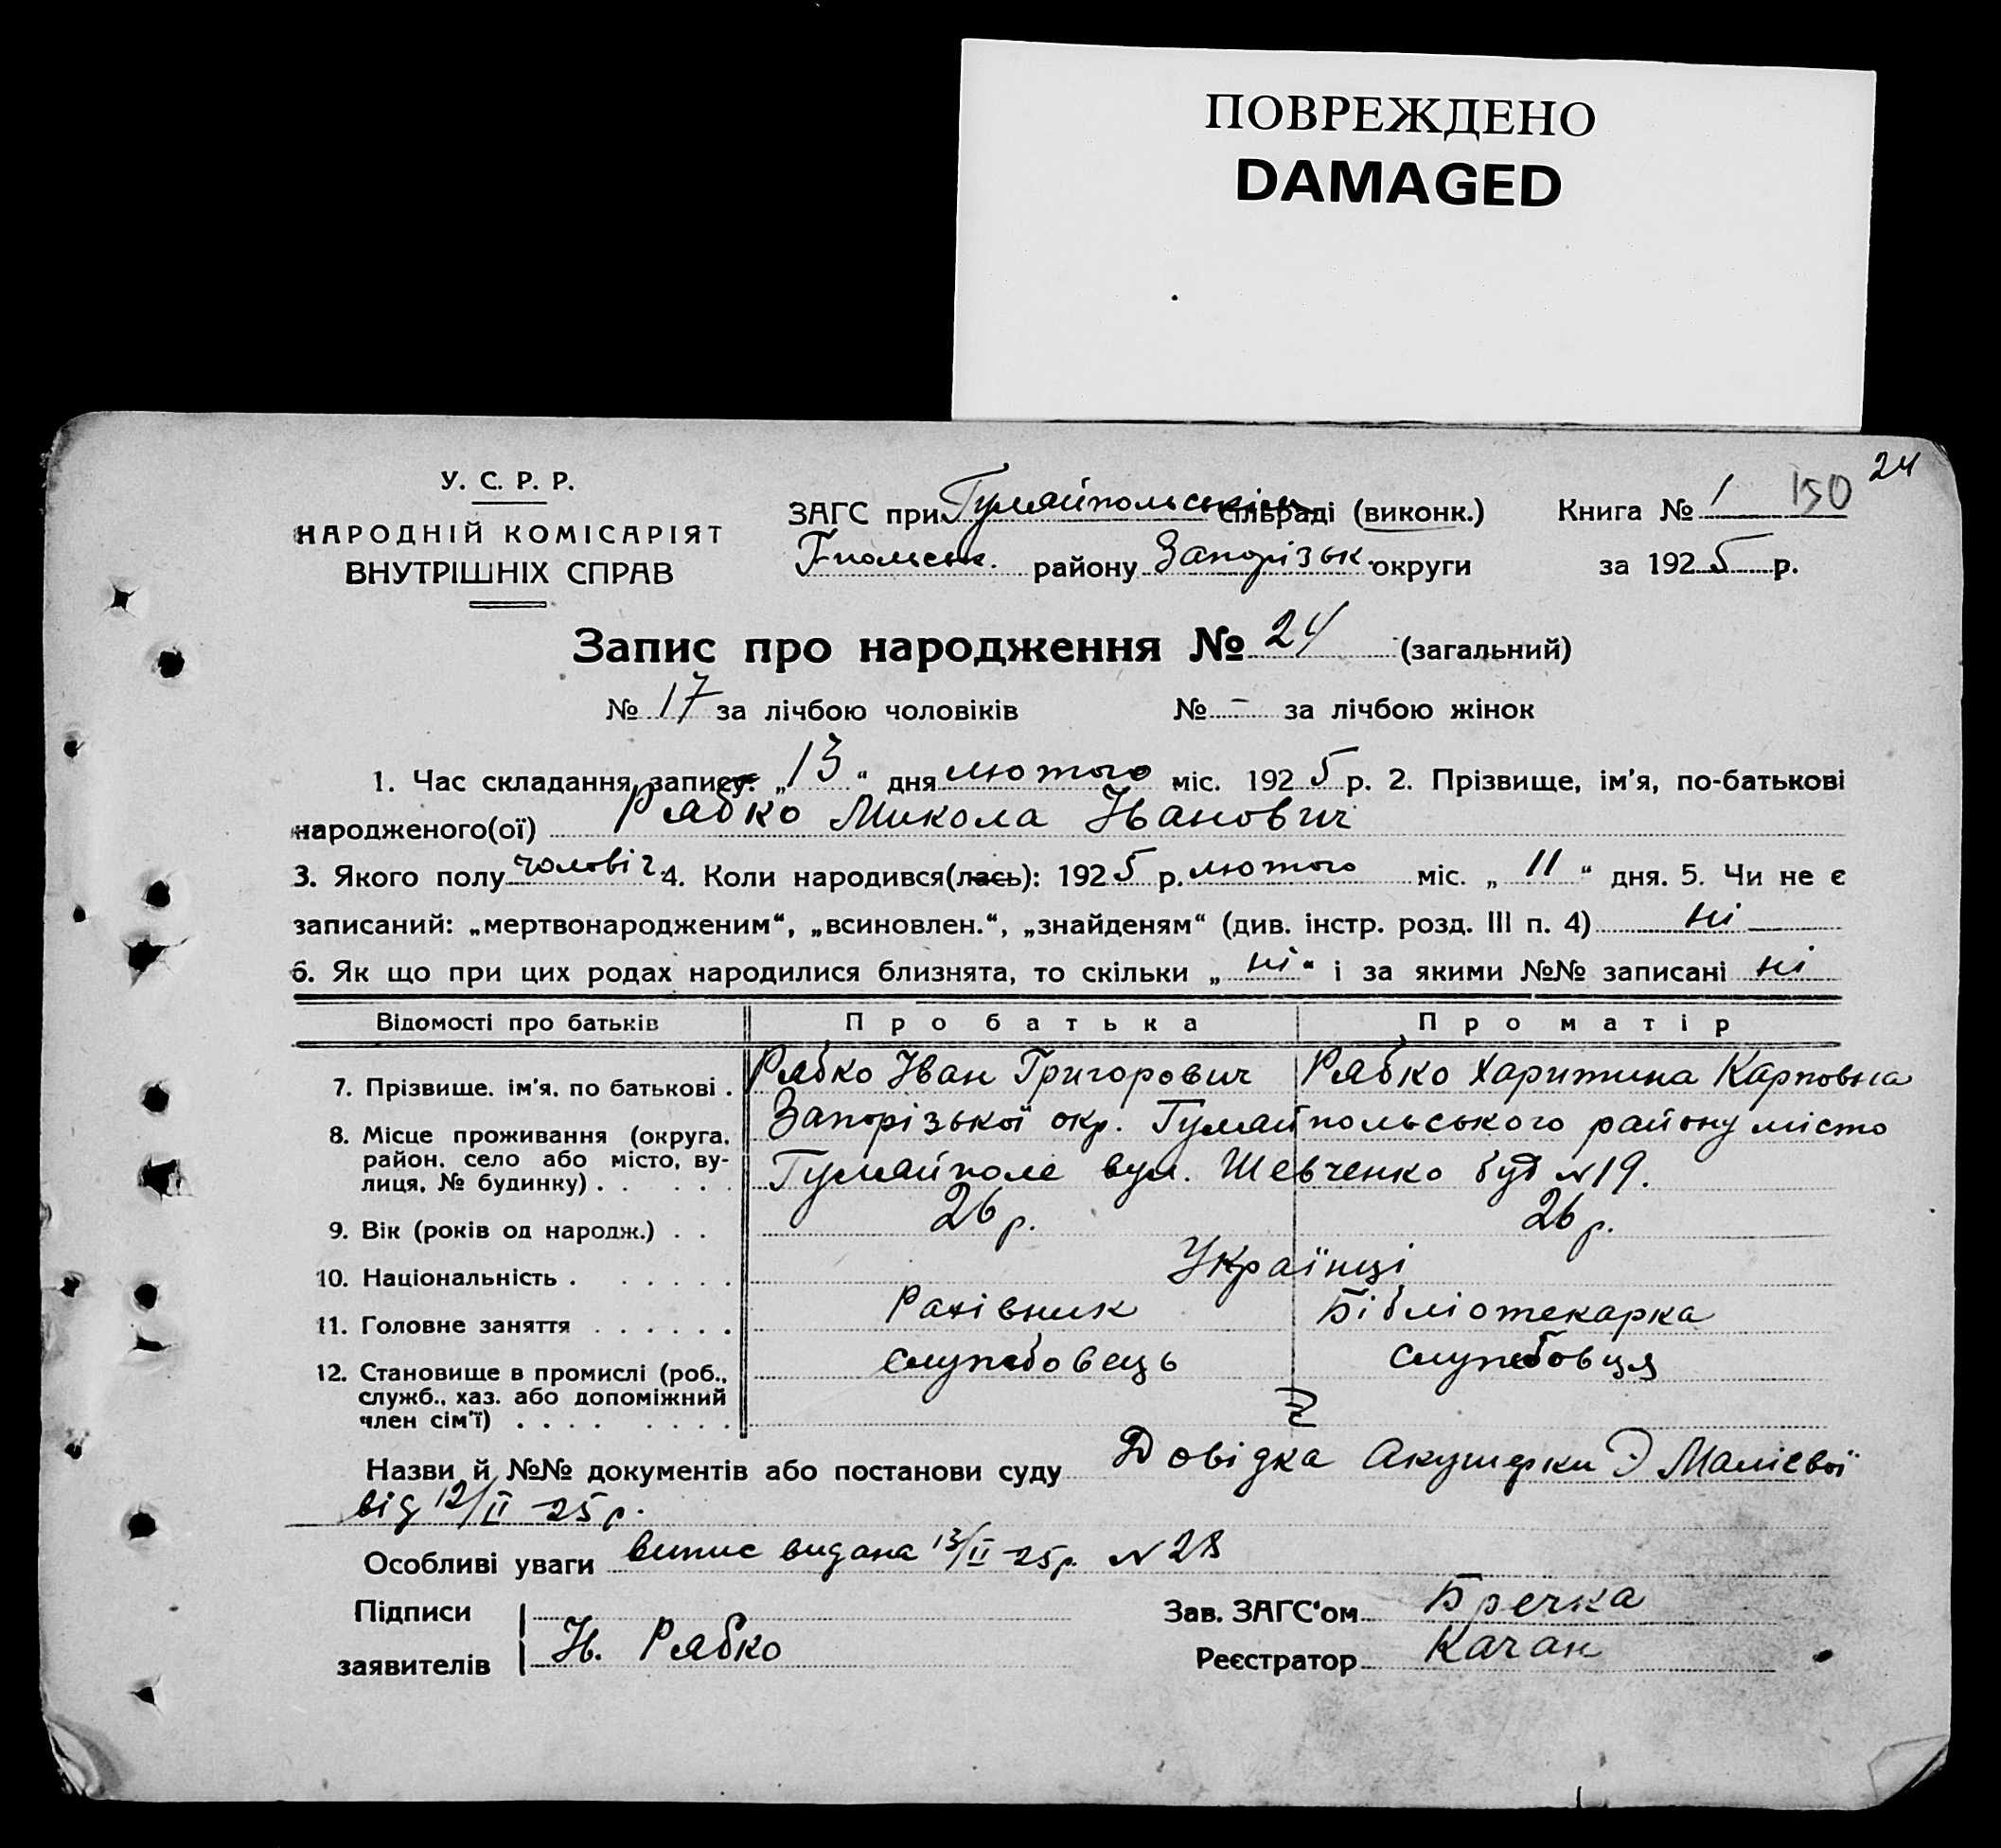 ПОВРЕЖДЕНО
DAMAGED
24
У. С. Р. Р.
НАРОДНІЙ КОМІСАРІЯТ
ВНУТРІШНІХ СПРАВ
ЗАГС при Гуляйпольськім сільраді (виконк.)
Гпольськ. району Запорізьк. округи
Книга № 1 150
за 1925 р.
Запис про народження № 24 (загальний)
№ 17 за лічбою чоловіків № - за лічбою жінок
1. Час складання запису: „13“ дня лютого міс. 1925 р. 2. Прізвище, ім'я, по-батькові
народженого(ої) Рябко Микола Іванович
3. Якого полу чоловіч. 4. Коли народився(лась): 1925 р. лютого міс. „11“ дня. 5. Чи не є
записаний: „мертвонародженим“, „всиновлен.“, „знайденям“ (див. інстр. розд. III п. 4) ні
6. Як що при цих родах народилися близнята, то скільки „ні“ і за якими №№ записані ні
Відомості про батьків Про батька Про матір
7. Прізвище. ім'я. по батькові . Рябко Іван Григорович Рябко Харитина Карповна
8. Місце проживання (округа. район. село або місто, вулиця, № будинку) . Запорізької окр. Гуляйпольського району місто
Гуляйполе вул. Шевченко буд №19.
9. Вік (років од народж.) . . 26 р. 26 р.
10. Національність . Українці
11. Головне заняття Рахівник Бібліотекарка
12. Становище в промислі (роб., служб., хаз. або допоміжний член сім'ї) службовець службовця
Назви й №№ документів або постанови суду Довідка Акушерки Э Малієвої
від 12/II-25 р.
Особливі уваги випис видана 13/II-25р. №28
Підписи
заявителів І. Рябко
Зав. ЗАГС'ом Бречка
Реєстратор Качан